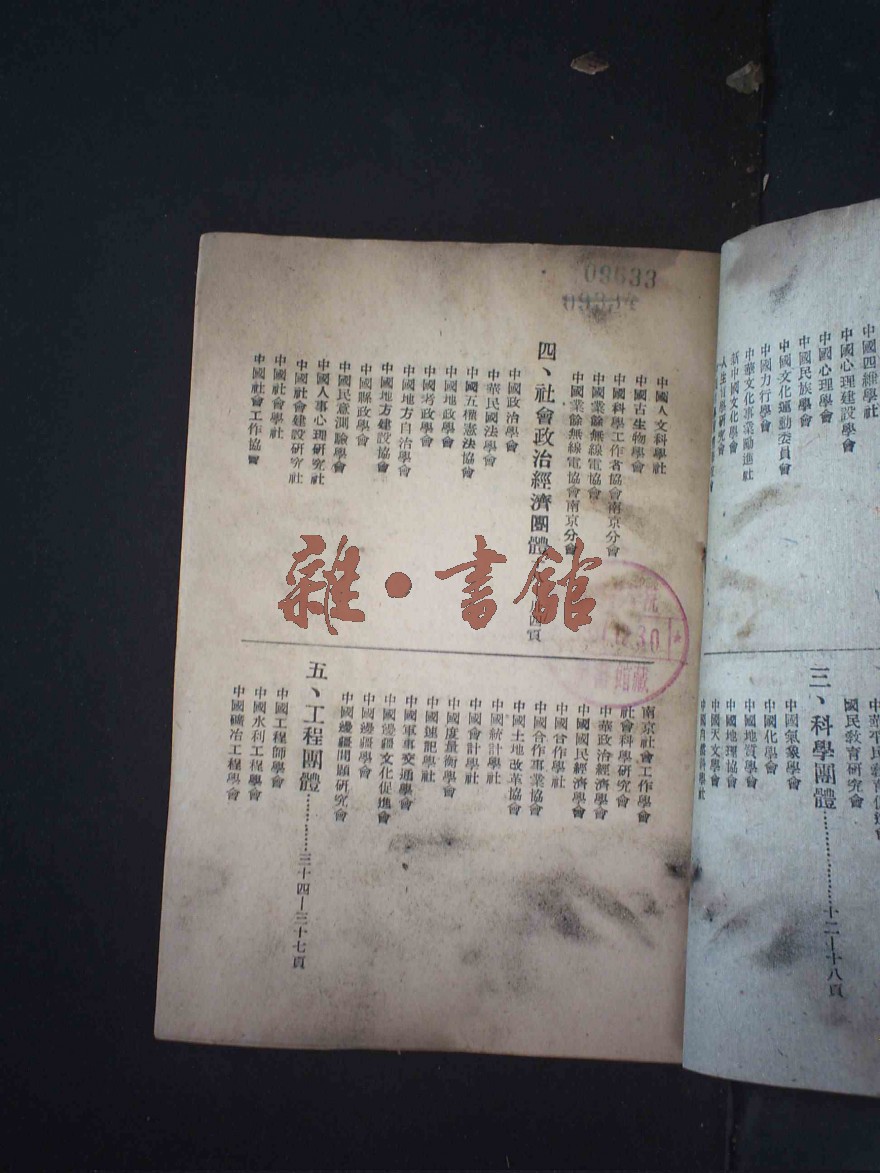 中國四維學社
中國心理建設學會
中國心理學會
中國民族學會
中國文化運動委員會
中國力行學會
中華文化事業勵進社
新中國文化學會
國民教育研究會
三、科學團體………………十二—十八頁
中國氣象學會
中國化學會
中國地質學會
中國地理協會
中國天文學會
中國自然科學社
09633
09334
中國人文科學社
中國古生物學會
中國科學工作者協會南京分會
中國業餘無線電協會
中國業餘無線電協會南京分會
四、社會政治經濟團體
四頁
中國政治學會
中華民國法學會
中國五權憲法協會
中國地政學會
中國考政學會
中國地方自治學會
中國地方建設協會
中國縣政學會
中國民意測驗學會
中國人事心理研究社
中國社會建設研究社
中國社會學社
中國社會工作協會
南京社會工作學會
社會科學研究會
中華政治經濟學會
中國國民經濟學會
中國合作學社
中國合作事業協會
中國土地改革協會
中國統計學社
中國會計學社
中國度量衡學會
中國速記學社
中國軍事交通學會
中國邊疆文化促進會
中國邊疆學會
中國邊疆問題研究會
五、工程團體…………三十四—三十七頁
中國工程師學會
中國水利工程學會
中國礦冶工程學會
雜·書館
館藏